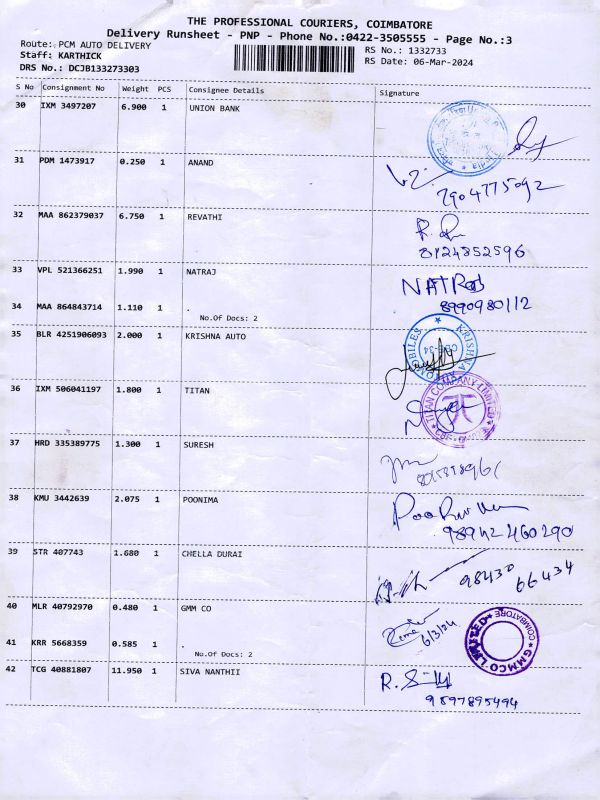 THE PROFESSIONAL COURIERS, COIMBATORE
Delivery Runsheet - PNP - Phone No.:0422-3505555 - Page No.:3
Route: PCM AUTO DELIVERY
RS No.: 1332733
Staff: KARTHICK
RS Date: 06-Mar-2024
DRS No.: DCJB133273303
S No Consignment No Weight PCS Consignee Details Signature
30 IXM 3497207 6.900 1 UNION BANK
31 PDM 1473917 0.250 1 ANAND
7904775092
32 MAA 862379037 6.750 1 REVATHI
8124852596
33 VPL 521366251 1.990 1 NATRAJ
8990980112
34 MAA 864843714 1.110 1 .
No.Of Docs: 2
35 BLR 4251906093 2.000 1 KRISHNA AUTO
KRISHNA
36 IXM 506041197 1.800 1 TITAN
TITAN COMPANY LIMITED
37 HRD 335389775 1.300 1 SURESH
38 KMU 3442639 2.075 1 POONIMA
98942 460290
39 STR 407743 1.680 1 CHELLA DURAI
98430 66434
40 MLR 40792970 0.480 1 GMM CO
6/3/24
GMMCO LIMITED COIMBATORE
41 KRR 5668359 0.585 1 .
No.Of Docs: 2
42 TCG 40881807 11.950 1 SIVA NANTHII
9597895494